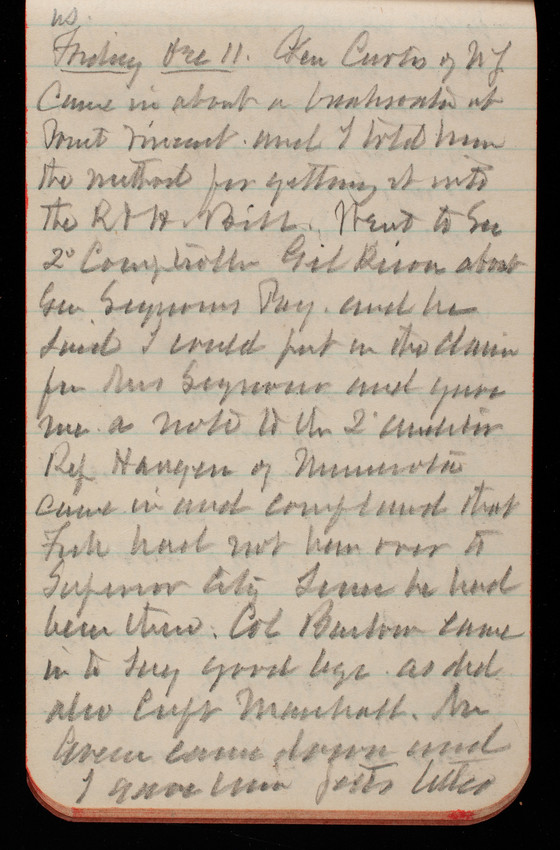 us.
Friday Dec 11. Gen Curtis of NY
came in about a breakwater at
Point Vincent and I told him
the method for getting it into
the R & H. Bill. Went to see
2° Comptroller Gilkison about
Gen Seymours Pay. and he
said I could put in the claim
for Mrs Seymour and gave
me a note to the 2° auditor
Rep Haugen of Minnesota
came in and complained that
Fisk had not been over to
Superior City since he had
been there. Col Barlow came
in to say good bye as did
also Capt Marshall. Mr
came down and
I gave him letter